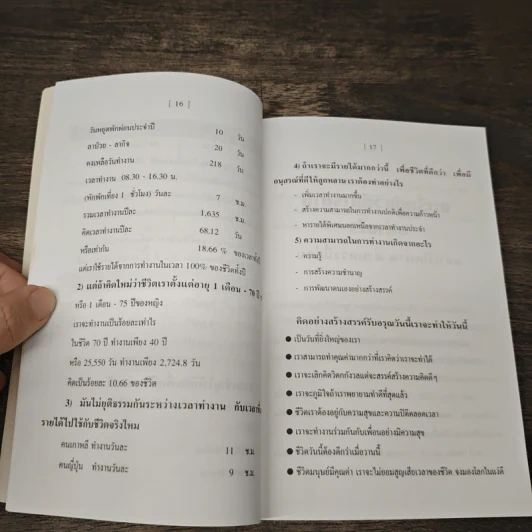 [ 16 ]
วันหยุดพักผ่อนประจำปี 10 วัน
ลาป่วย - ลากิจ 20 วัน
คงเหลือวันทำงาน 218 วัน
เวลาทำงาน 08.30 - 16.30 น.
(พักเที่ยง 1 ชั่วโมง) วันละ 7 ช.ม.
รวมเวลาทำงานปีละ 1,635 ช.ม.
คิดเวลาทำงานปีละ 68.12 วัน
หรือเท่ากับ 18.66 % ของเวลาทั้งปี
แต่เราใช้รายได้จากการทำงานในเวลา 100% ของชีวิตทั้งปี
2) แต่ถ้าคิดใหม่ว่าชีวิตเราตั้งแต่อายุ 1 เดือน - 70 ปี
หรือ 1 เดือน - 75 ปีของหญิง
เราจะทำงานเป็นร้อยละเท่าไร
ในชีวิต 70 ปี ทำงานเพียง 40 ปี
หรือ 25,550 วัน ทำงานเพียง 2,724.8 วัน
คิดเป็นร้อยละ 10.66 ของชีวิต
3) มันไม่ยุติธรรมกันระหว่างเวลาทำงาน กับเวลาที่
รายได้ไปใช้กับชีวิตจริงไหม
คนเกาหลี ทำงานวันละ 11 ช.ม.
คนญี่ปุ่น ทำงานวันละ 9 ช.ม.
[ 17 ]
4) ถ้าเราจะมีรายได้มากกว่านี้ เพื่อชีวิตที่ดีกว่า เพื่อมี
อนุสรณ์ที่ดีให้ลูกหลาน เราต้องทำอย่างไร
- เพิ่มเวลาทำงานมากขึ้น
- สร้างความสามารถในการทำงานปกติเพื่อความก้าวหน้า
- หารายได้พิเศษนอกเหนือจากเวลาทำงานปกติ
5) ความสามารถในการทำงานเกิดจากอะไร
- ความรู้
- การสร้างความชำนาญ
- การพัฒนาตนเองอย่างสร้างสรรค์
คิดอย่างสร้างสรรค์รับอรุณวันนี้เราจะทำให้วันนี้
● เป็นวันที่ยิ่งใหญ่ของเรา
● เราสามารถทำคุณค่ามากกว่าที่เราคิดว่าเราจะทำได้
● เราจะเลิกคิดวิตกกังวลแต่จะสรรค์สร้างความคิดดีๆ
● เราจะภูมิใจถ้าเราพยายามทำดีที่สุดแล้ว
● ชีวิตเราต้องอยู่กับความสุขและความปิติตลอดเวลา
● เราจะทำงานร่วมกันกับเพื่อนอย่างมีความสุข
● ชีวิตวันนี้ต้องดีกว่าเมื่อวานนี้
● ชีวิตมนุษย์มีคุณค่า เราจะไม่ยอมสูญเสียเวลาของชีวิต จงมองโลกในแง่ดี